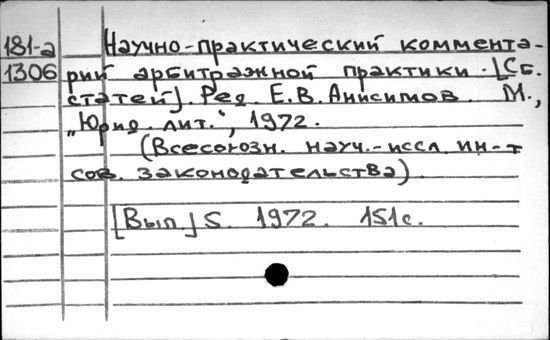 181-а Научно-практический коммента-
1306 рий арбитражной практики. [Сб.
статей]. Ред. Е.В. Анисимов. М.,
„Юрид. лит.", 1972.
(Всесоюзн. науч.-иссл. ин-т
сов. законодательства).
[Вып] 5. 1972. 151с.